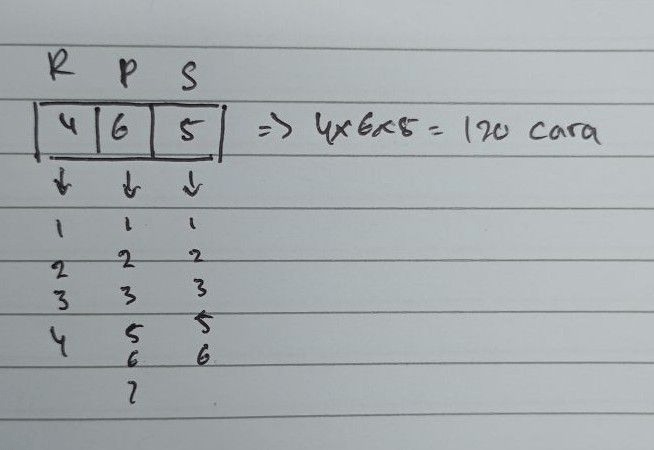 R P S
4 6 5 => 4x6x5 = 120 cara
↓ ↓ ↓
1 1 1
2 2 2
3 3 3
4 5 5
6 6
7